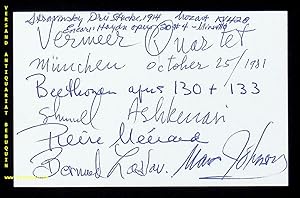 VERSAND ANTIQUARIAT BEBUQUIN
Strawinsky Drei Stücke, 1914 Mozart KV428
Encore: Haydn opus #4 - Minuetto
Vermeer Quartet
München October 25/1981
Beethoven opus 130 + 133
Shmuel Ashkenasi
Pierre Menard
Bernard Zaslav Marc Johnson